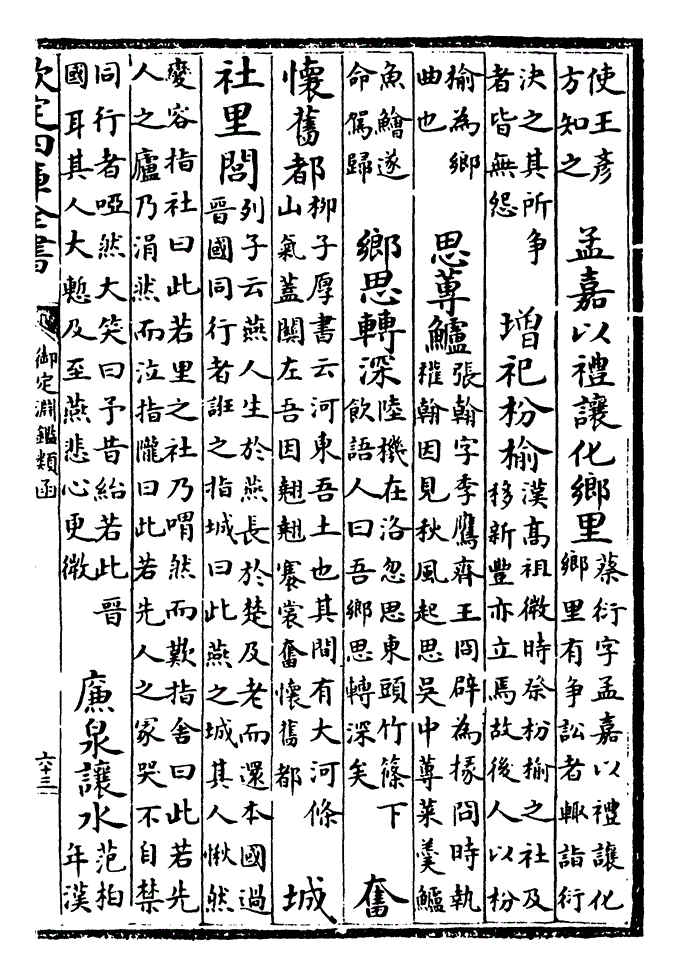 使王彥
方知之
孟嘉以禮讓化鄉里
蔡衍字孟嘉以禮讓化
鄉里有争訟者輙詣衍
決之其所争
者皆無怨
增祀枌榆
漢高祖微時祭枌榆之社及
移新豐亦立焉故後人以枌
榆為鄉
曲也
思蓴鱸
張翰字季鷹齊王冏辟為掾冏時執
權翰因見秋風起思吳中蓴菜羮鱸
魚鱠遂
命駕歸
鄉思轉深
陸機在洛忽思東頭竹篠下
飲語人曰吾鄉思轉深矣
奮
懷舊都
柳子厚書云河東吾土也其間有大河條
山氣蓋關左吾因翹翹褰裳奮懷舊都
城
社里閭
列子云燕人生於燕長於楚及老而還本國過
晉國同行者誑之指城曰此燕之城其人愀然
變容指社曰此若里之社乃喟然而歎指舍曰此若先
人之廬乃涓然而泣指隴曰此若先人之冢哭不自禁
同行者啞然大笑曰予昔紿若此晉
國耳其人大慙及至燕悲心更微
廉泉讓水
范柏
年漢
欽定四庫全書
御定淵鑑類函
六十三